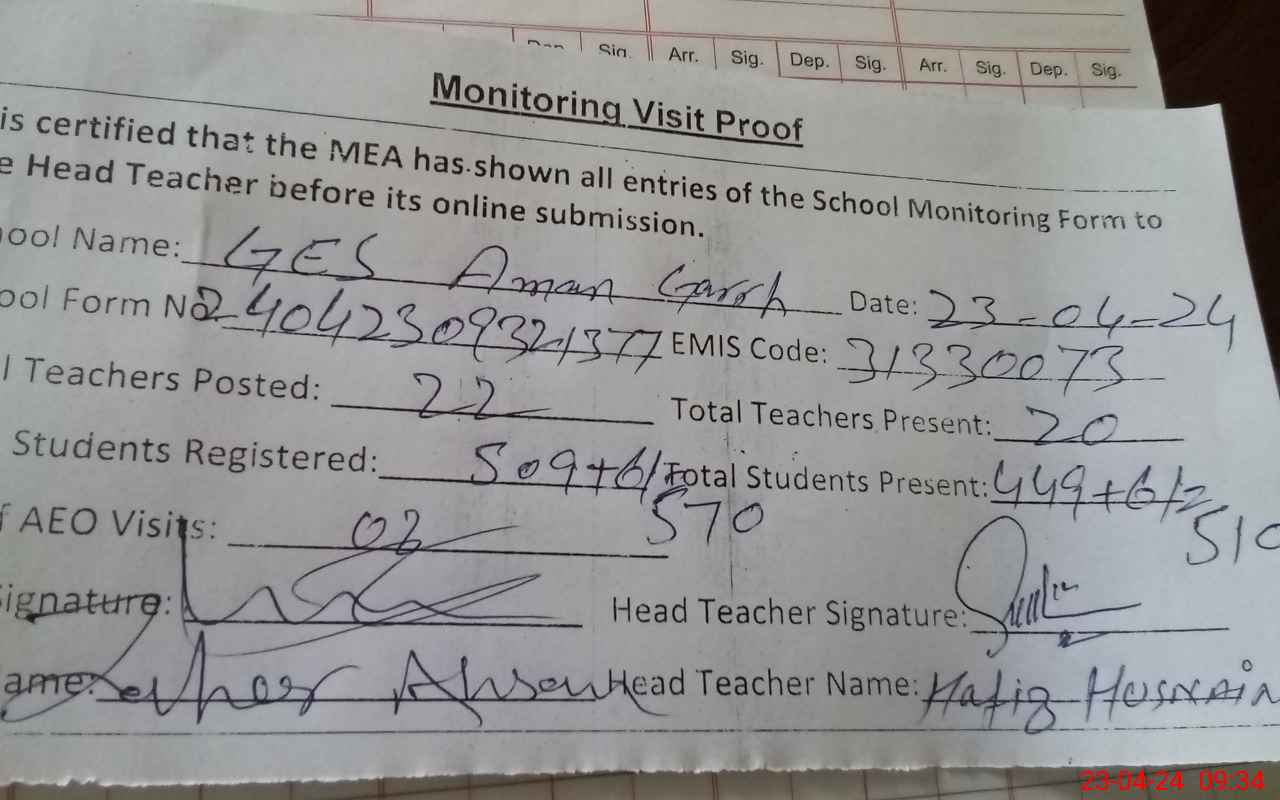 Sig. Arr. Sig. Dep. Sig. Arr. Sig. Dep. Sig.
Monitoring Visit Proof
is certified that the MEA has shown all entries of the School Monitoring Form to
e Head Teacher before its online submission.
ool Name: GES Aman Garrh Date: 23-04-24
ool Form No 24042309321377 EMIS Code: 31330073
l Teachers Posted: 22 Total Teachers Present: 20
Students Registered: 509+61 Total Students Present: 449+61=
570 510
f AEO Visits: 02
ignature: Head Teacher Signature:
ame: Head Teacher Name: Hafiz HUSNAIN
23-04-24 09:34